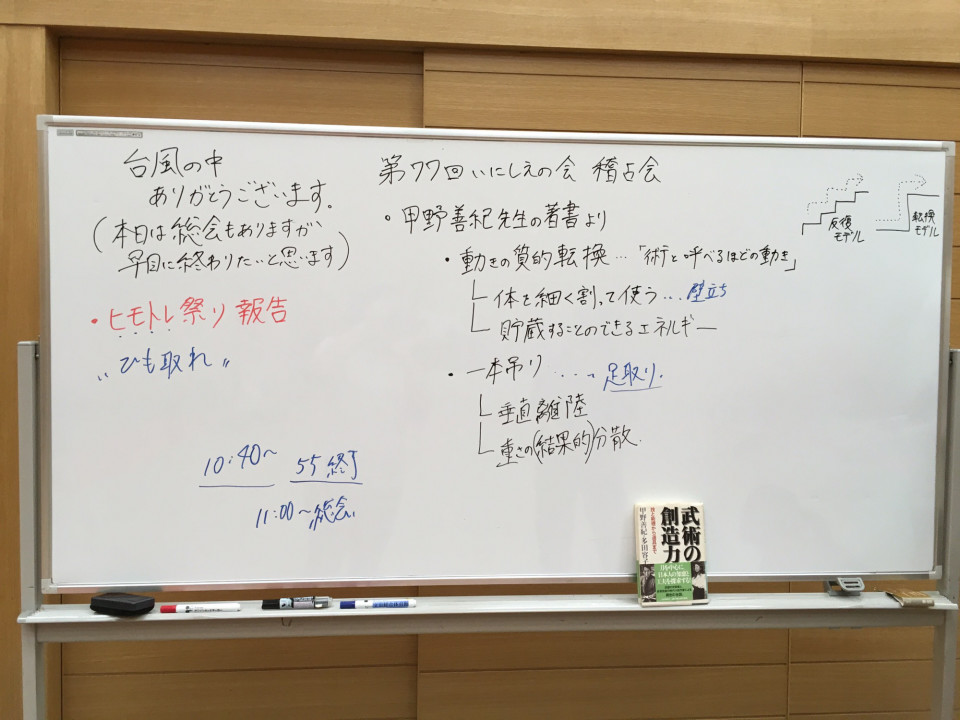 台風の中
ありがとうございます。
(本日は総会もありますが
早目に終わりたいと思います)
・ヒモトレ祭り報告
〝ひも取れ〟
10:40〜 55終了
11:00〜総会
第77回いにしえの会 稽古会
・甲野善紀先生の著書より
・動きの質的転換…「術と呼べるほどの動き」
体を細く割って使う…壁立ち
貯蔵することのできるエネルギー
・一本吊り ・・・・足取り.
垂直離陸
重さの(結果的)分散.
反復
モデル
転換
モデル
武術の
創造力
甲野善紀 多田容子